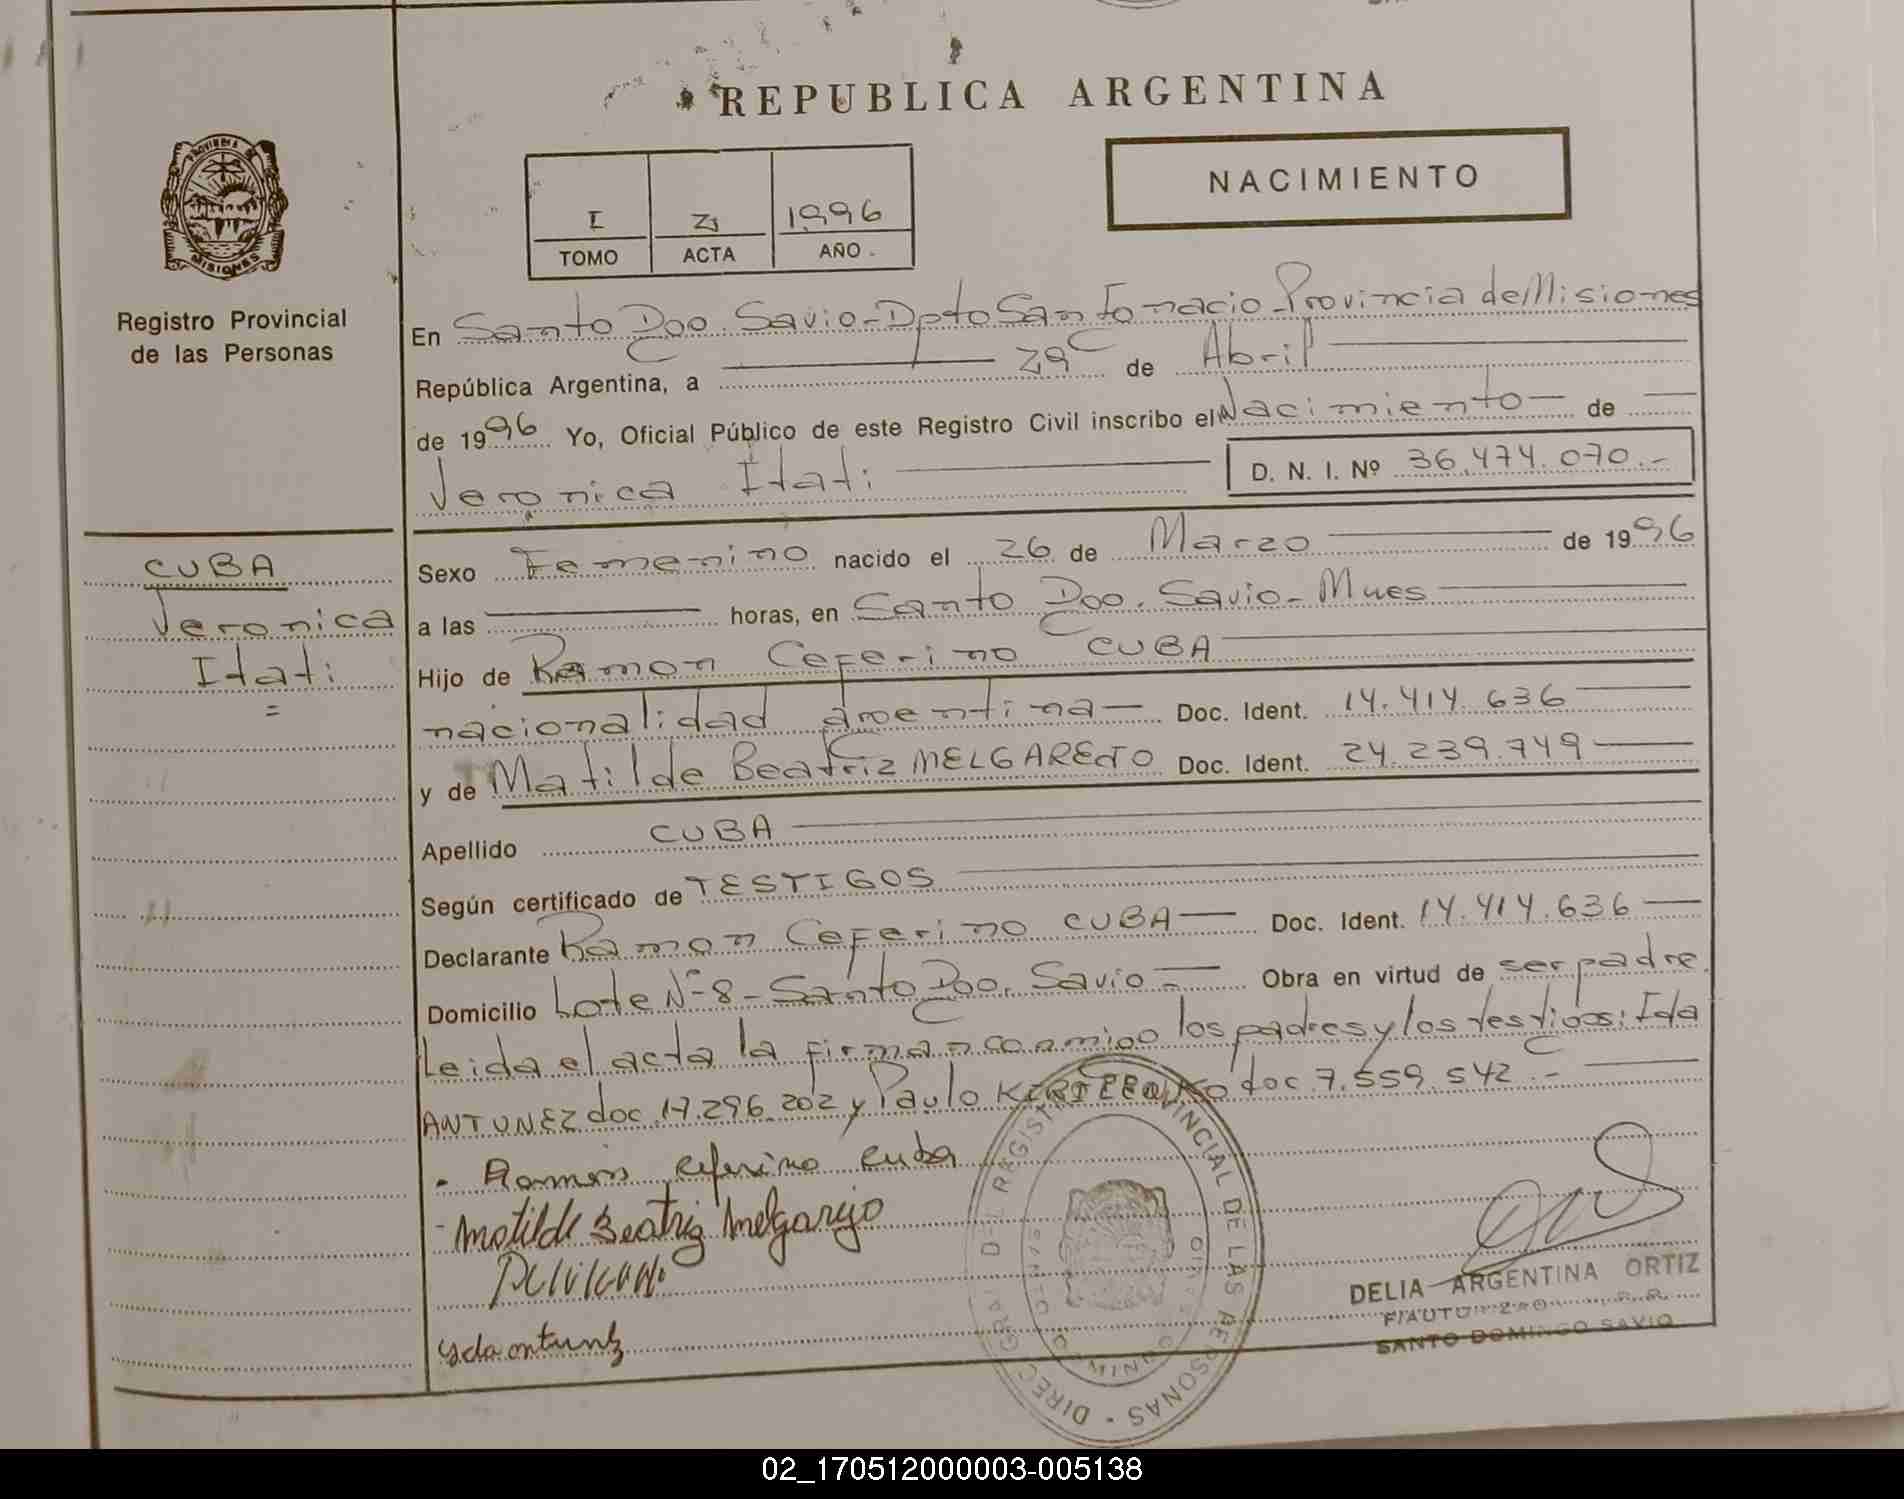 REPUBLICA ARGENTINA
NACIMIENTO
PROVINCIA DE
MISIONES
I 1.996
TOMO ACTA AÑO
Registro Provincial
de las Personas
En Santo Dgo. Savio - Dpto San Ignacio - Provincia de Misiones
República Argentina, a 29 de Abril
de 1996 Yo, Oficial Público de este Registro Civil inscribo el Nacimiento de
Veronica Itati
D. N. I. Nº 36.474.070.-
CUBA
Veronica
Itati
=
Sexo Femenino nacido el 26 de Marzo de 1996
a las horas, en Santo Dgo. Savio - Mnes
Hijo de Ramon Ceferino CUBA
nacionalidad argentina Doc. Ident. 14.414.636
y de Matilde Beatriz MELGAREJO Doc. Ident. 24.239.749
Apellido CUBA
Según certificado de TESTIGOS
Declarante Ramon Ceferino CUBA Doc. Ident. 14.414.636
Domicilio Lote Nº 8 - Santo Dgo. Savio - Obra en virtud de ser padre.
Leida el acta la firman conmigo los padres y los testigos: Ida
ANTUNEZ doc. 17.296.202 y Paulo doc 7.559.542.-
- Ramon ceferino cuba
- Matilde Beatriz Melgarejo
yda antunez
DIREC. GRAL DEL REGISTRO PROVINCIAL DE LAS PERSONAS
DELIA ARGENTINA ORTIZ
SANTO DOMINGO SAVIO
02_170512000003-005138